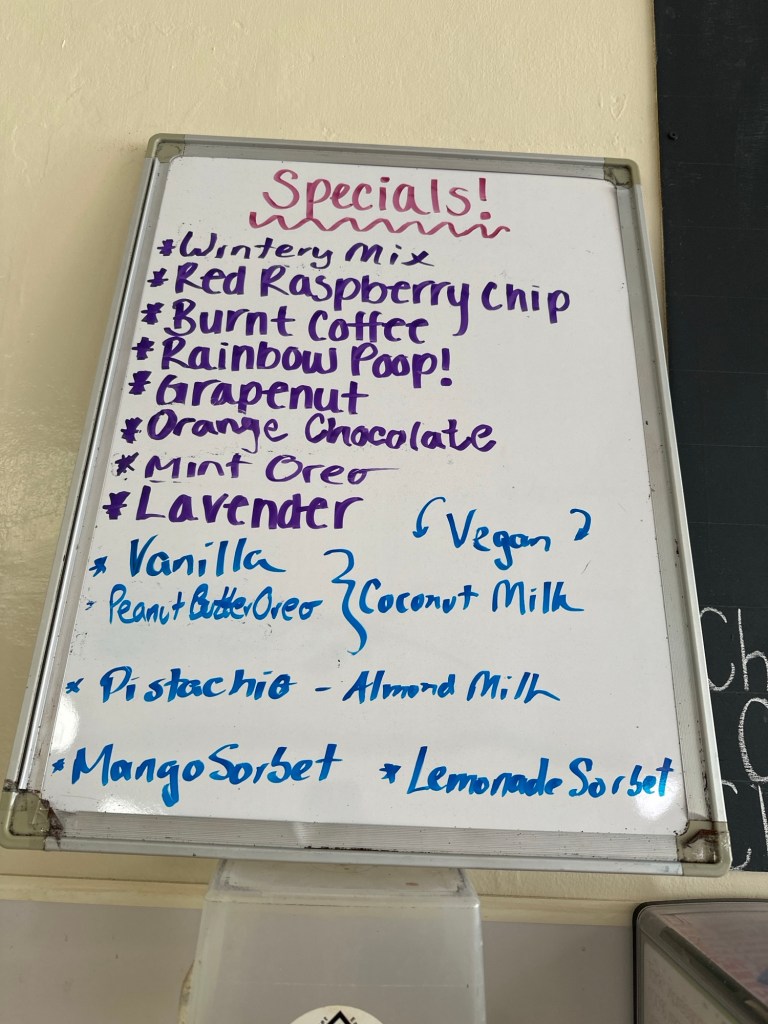 Specials!
*Wintery Mix
*Red Raspberry Chip
*Burnt Coffee
*Rainbow Poop!
*Grapenut
*Orange Chocolate
*Mint Oreo
*Lavender
Vegan
*Vanilla
*Peanut Butter Oreo } Coconut Milk
*Pistachio - Almond Milk
*Mango Sorbet *Lemonade Sorbet
Ch